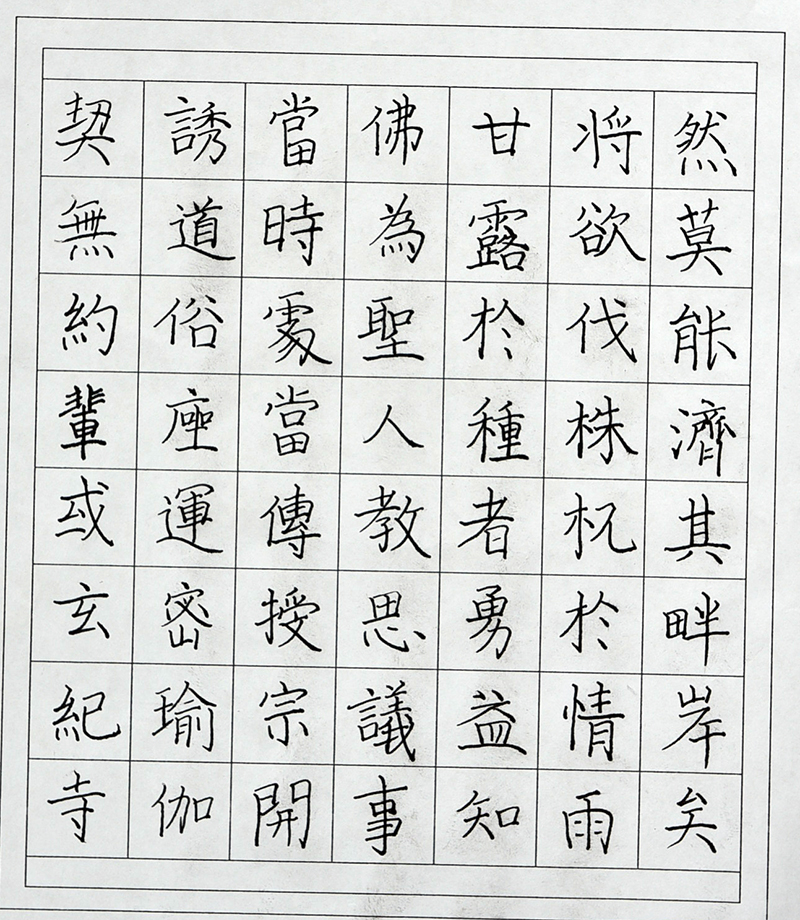 然莫能濟其畔岸矣
将欲伐株杌於情雨
甘露於種者勇益知
佛為聖人教思議事
當時處當傳授宗開
誘道俗座運密瑜伽
契無約輩或玄紀寺